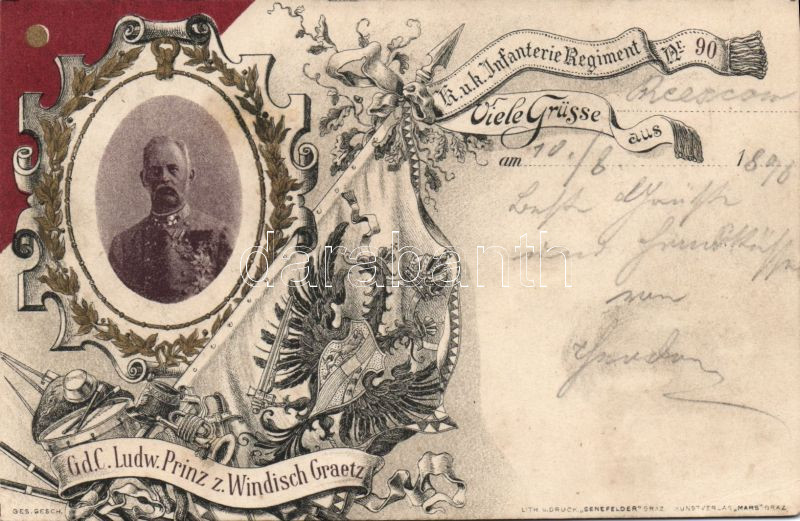 K.u.k. Infanterie Regiment Nr. 90
Viele Grüsse aus
am 10./8. 1898
Beste Grüße
und Handküsse
von
G.d.C. Ludw. Prinz z. Windisch Graetz
darabanth
GES. GESCH.
LITH. U. DRUCK. „SENEFELDER" GRAZ. KUNSTVERLAG „MARS" GRAZ